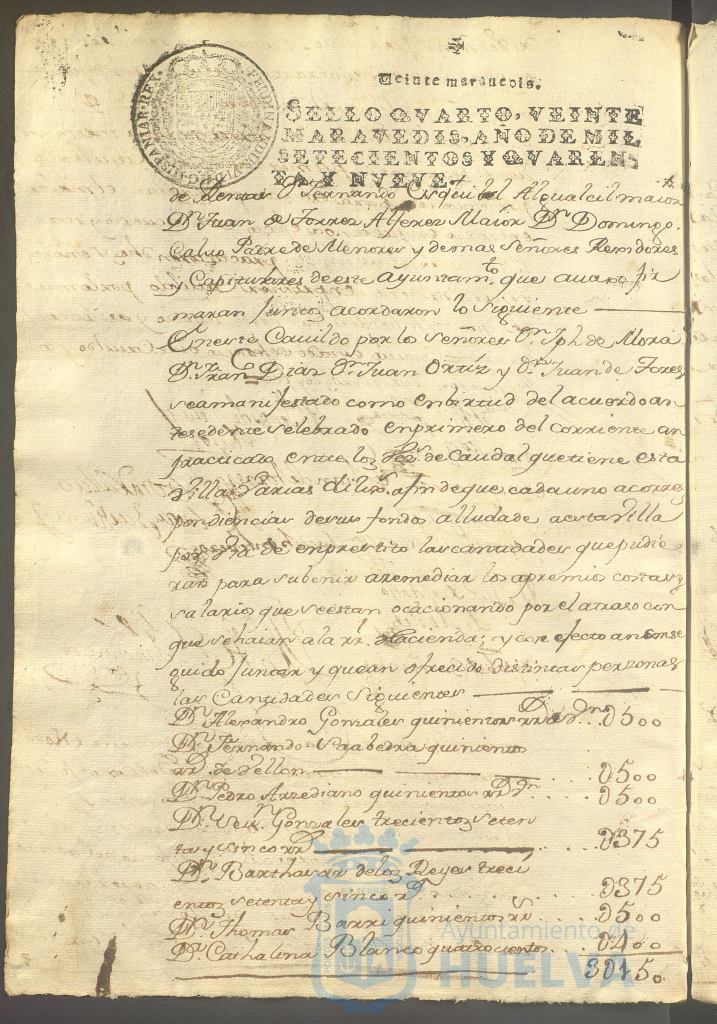 FERDINANDUS VI D G HISPANIAR REX
Veinte maravedis.
SELLO QVARTO, VEINTE
MARAVEDIS, AÑO DE MIL
SETECIENTOS Y QVAREN-
TA Y NVEVE.
Dn. Fernando Esquibel Alguacil maior
Dn. Juan de Torres Alferez Maior Dn. Domingo
Calvo Padre de Menores y demas Señores Rexidores
y Capitulares de este Ayuntamto. que avajo fir
maran Juntos acordaron lo siguiente
En este Cavildo por lo Señores Dn. Jph. de Mora
Dn. Franco. Dias Dn. Juan Ortiz y Dn. Juan de Torres
se a manifestado como en birtud del acuerdo an
tesedente selebrado en primero del corriente an
practicado entre los de Caudal que tiene esta
Villa Varias dilixs. a fin de que cada uno a corres
pondiencias de sus fondos alludase a esta Villa
por Via de emprestito las cantidades que pudie
ran para subenir a remediar los apremios costas y
salario que se estan ocacionando por el atraso con
que se haian a la rl. Hacienda; y con efecto an conse
guido Juntar y que an ofrecido distintas perzonas
las Cantidades Siguientes
Dn. Alexandro Gonzales quinientos rrs. de Vn. 0500
Dn. Fernando Saabedra quinientos
rrs. de Vellon 0500
Dn. Pedro Arzediano quinientos rrs. Vn. 0500
Dn. Gonzales trecientos seten
ta y sinco rrs. 0375
Dn. Barthasar de los Reyes treci
entos setenta y sinco rs. 0375
Dn. Thomas Barri quinientos rrs. 0500
Da. Cathalina Blanco quatrocientos 0400
30150
Ayuntamiento de
HUELVA